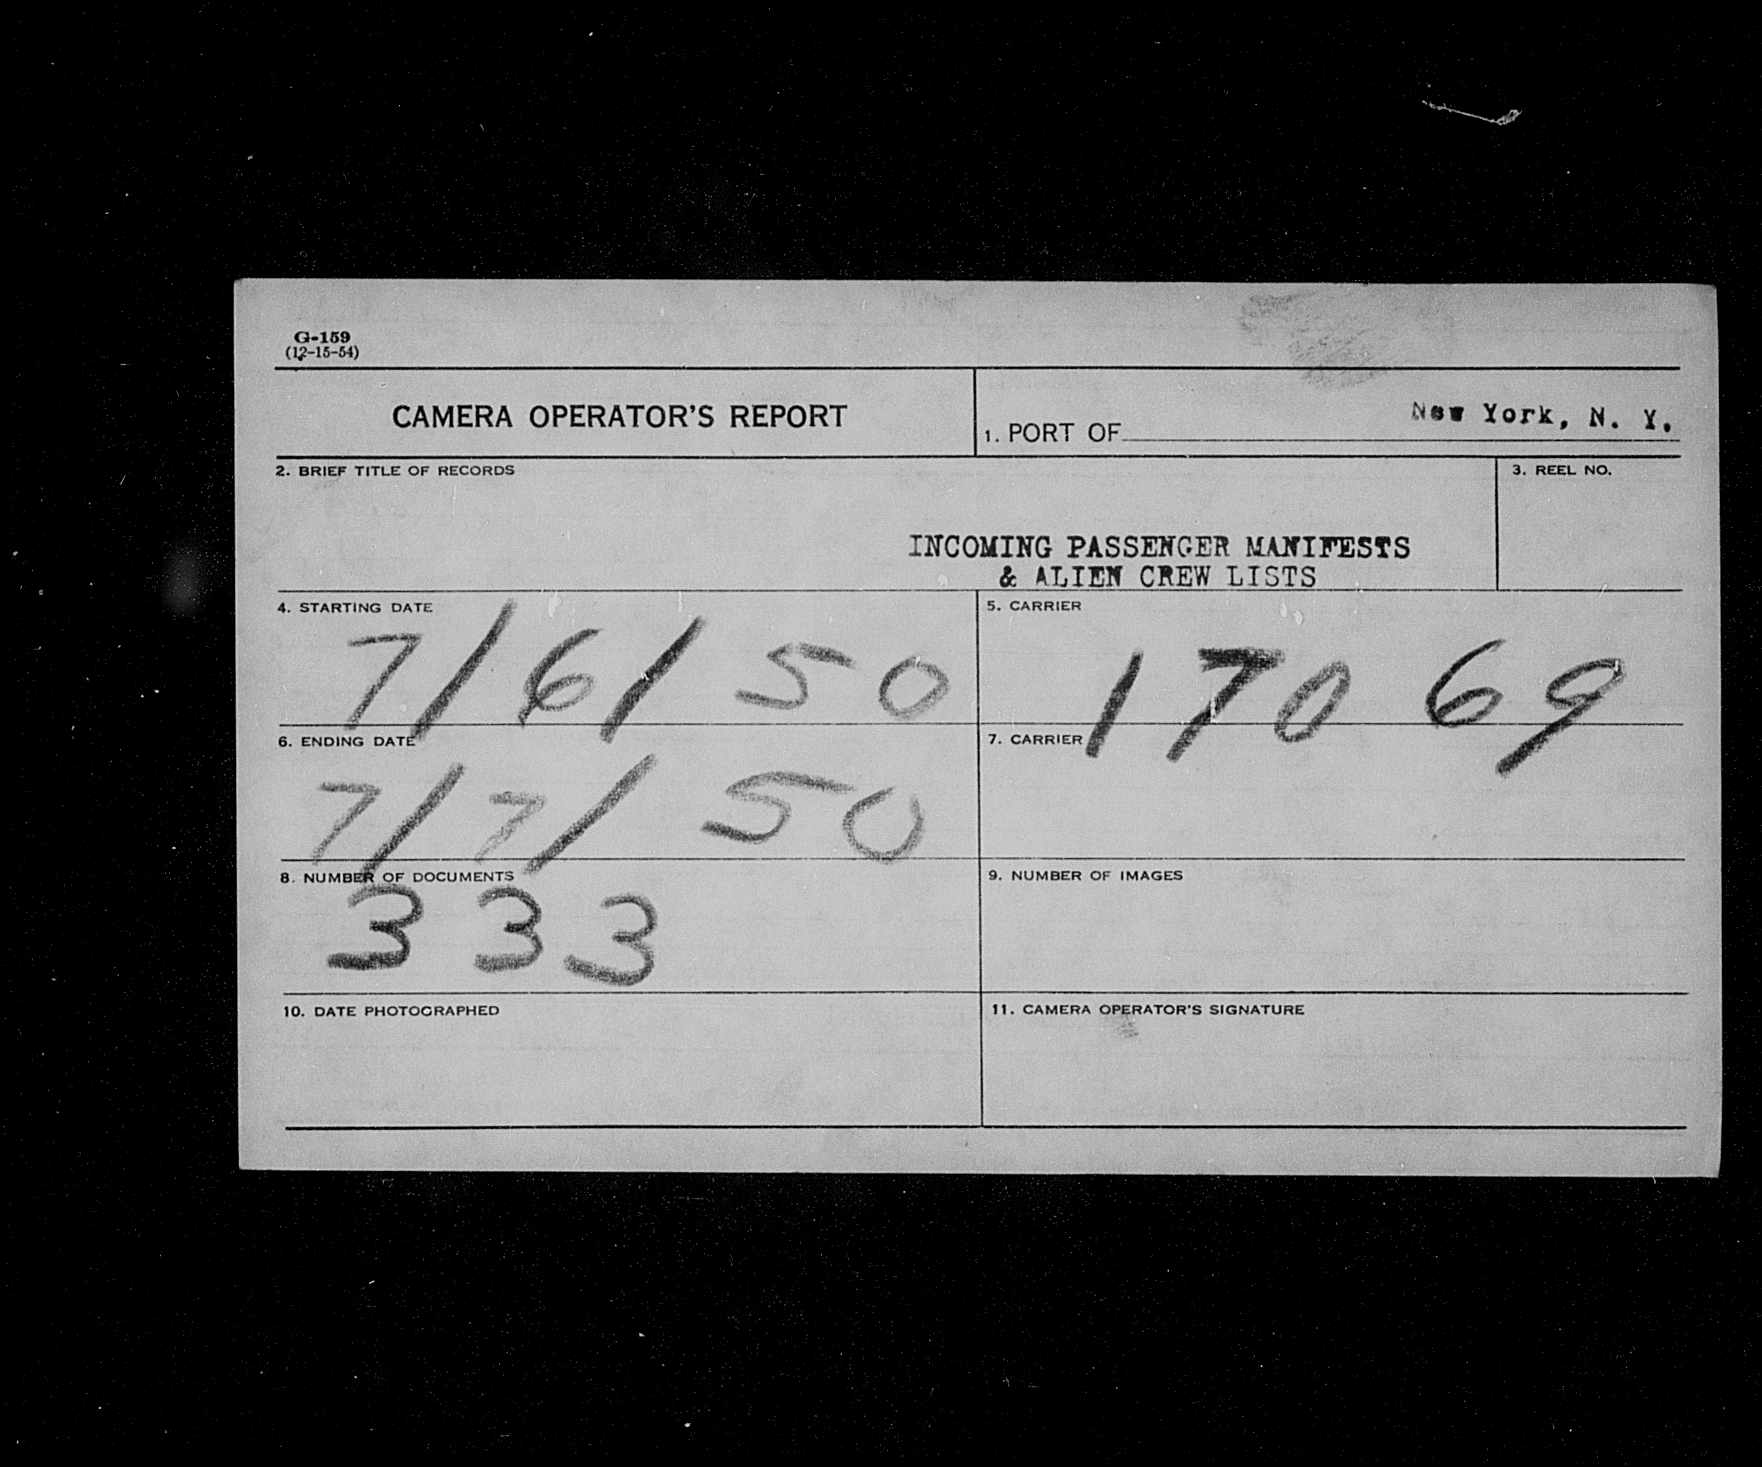 G-159
(12-15-54)
CAMERA OPERATOR'S REPORT
1. PORT OF New York, N. Y.
2. BRIEF TITLE OF RECORDS
3. REEL NO.
INCOMING PASSENGER MANIFESTS
& ALIEN CREW LISTS
4. STARTING DATE
7/6/50
5. CARRIER
17069
6. ENDING DATE
7/7/50
7. CARRIER
8. NUMBER OF DOCUMENTS
333
9. NUMBER OF IMAGES
10. DATE PHOTOGRAPHED
11. CAMERA OPERATOR'S SIGNATURE